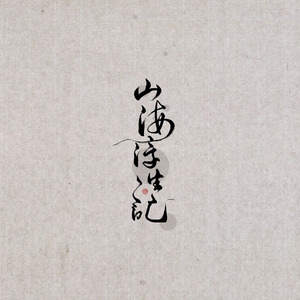 山海浮生記